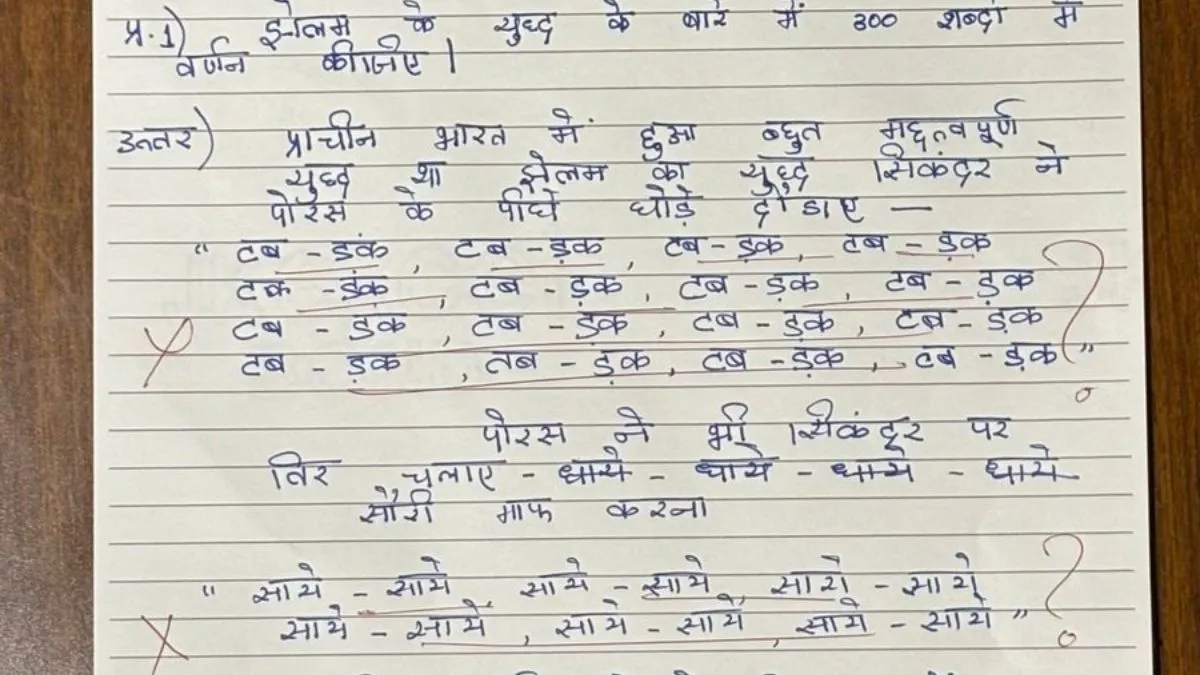 प्र.1) झेलम के युध्द के बारे में 300 शब्दों में
वर्णन कीजिए |
उत्तर) प्राचीन भारत में हुआ बहुत महत्वपूर्ण
युध्द था झेलम का युध्द सिकंदर ने
पोरस के पीछे घोड़े दौडाए —
“ टब - डंक , टब - ड़क , टब - ड़क , टब - ड़क
टक - ड़क , टब - ड़क , टब - ड़क , टब - ड़क
टब - ड़क , टब - ड़क , टब - ड़क , टब - ड़क
टब - ड़क , तब - ड़क , टब - ड़क , टब - ड़क ”
पोरस ने भी सिकंदर पर
तिर चलाए - धाये - धाये - धाये - धाये
सौरी माफ करना
“ साये - साये साये - साये, साये - साये
साये - साये , साये - साये , साये - साये ”